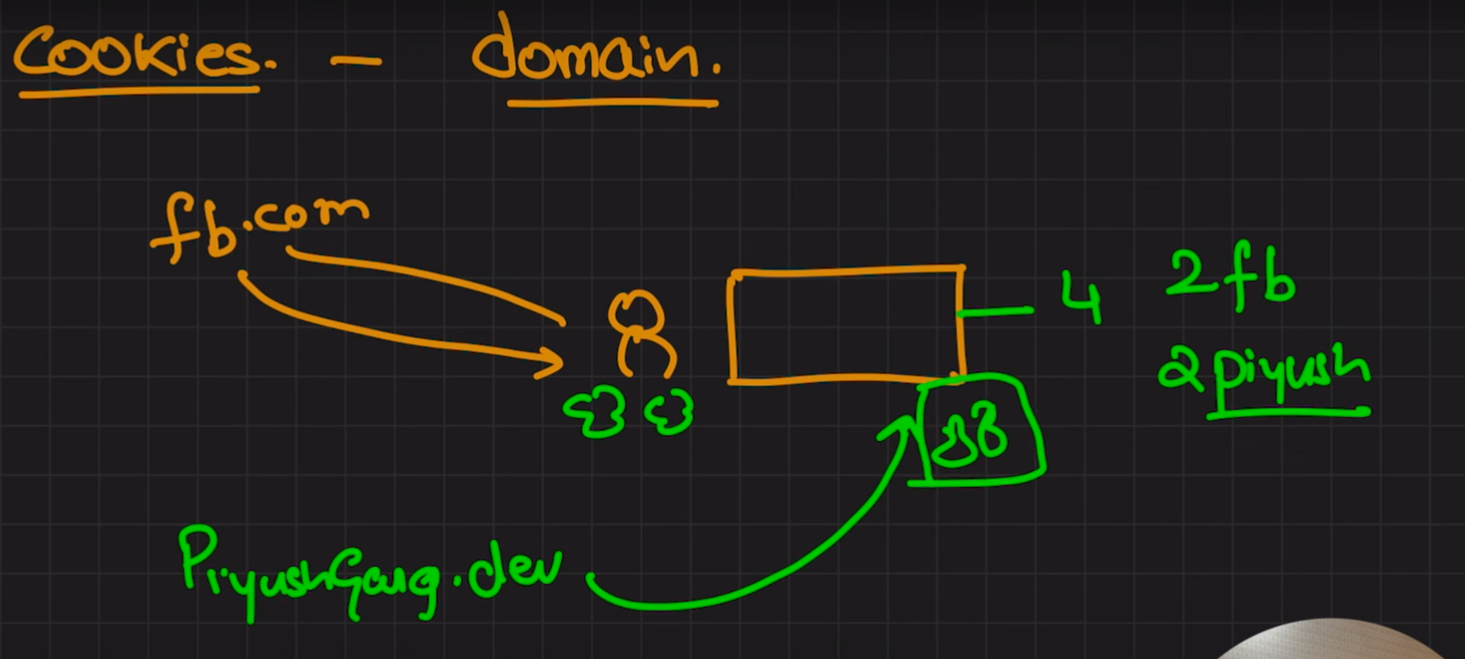 Cookies. — domain.
fb.com
4 2fb
2 piyush
PiyushGarg.dev